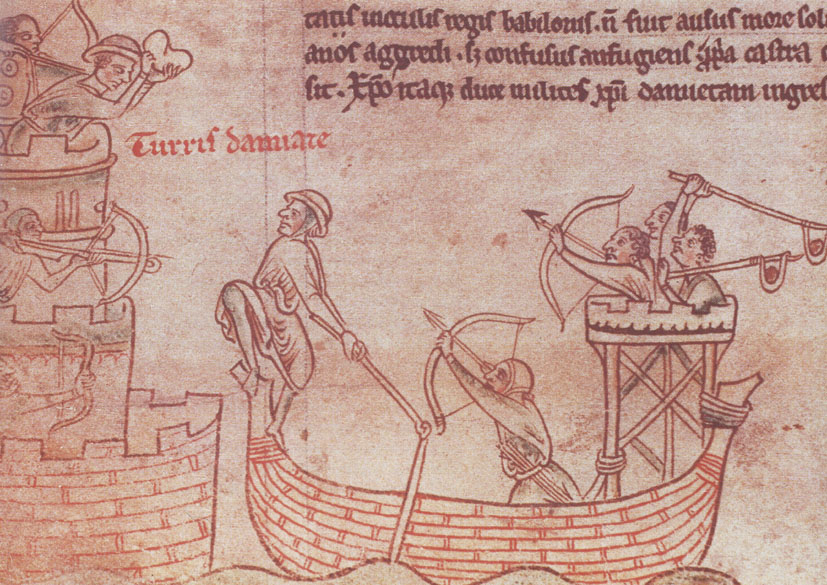 regis babilonis. n̄ fuit ausus more sol
aggredi . sꝫ confusus aufugiens ꝓp̄a castra
sit . Xp̄o itaqꝫ duce milites xp̄i damietam ingres
Turris damiate